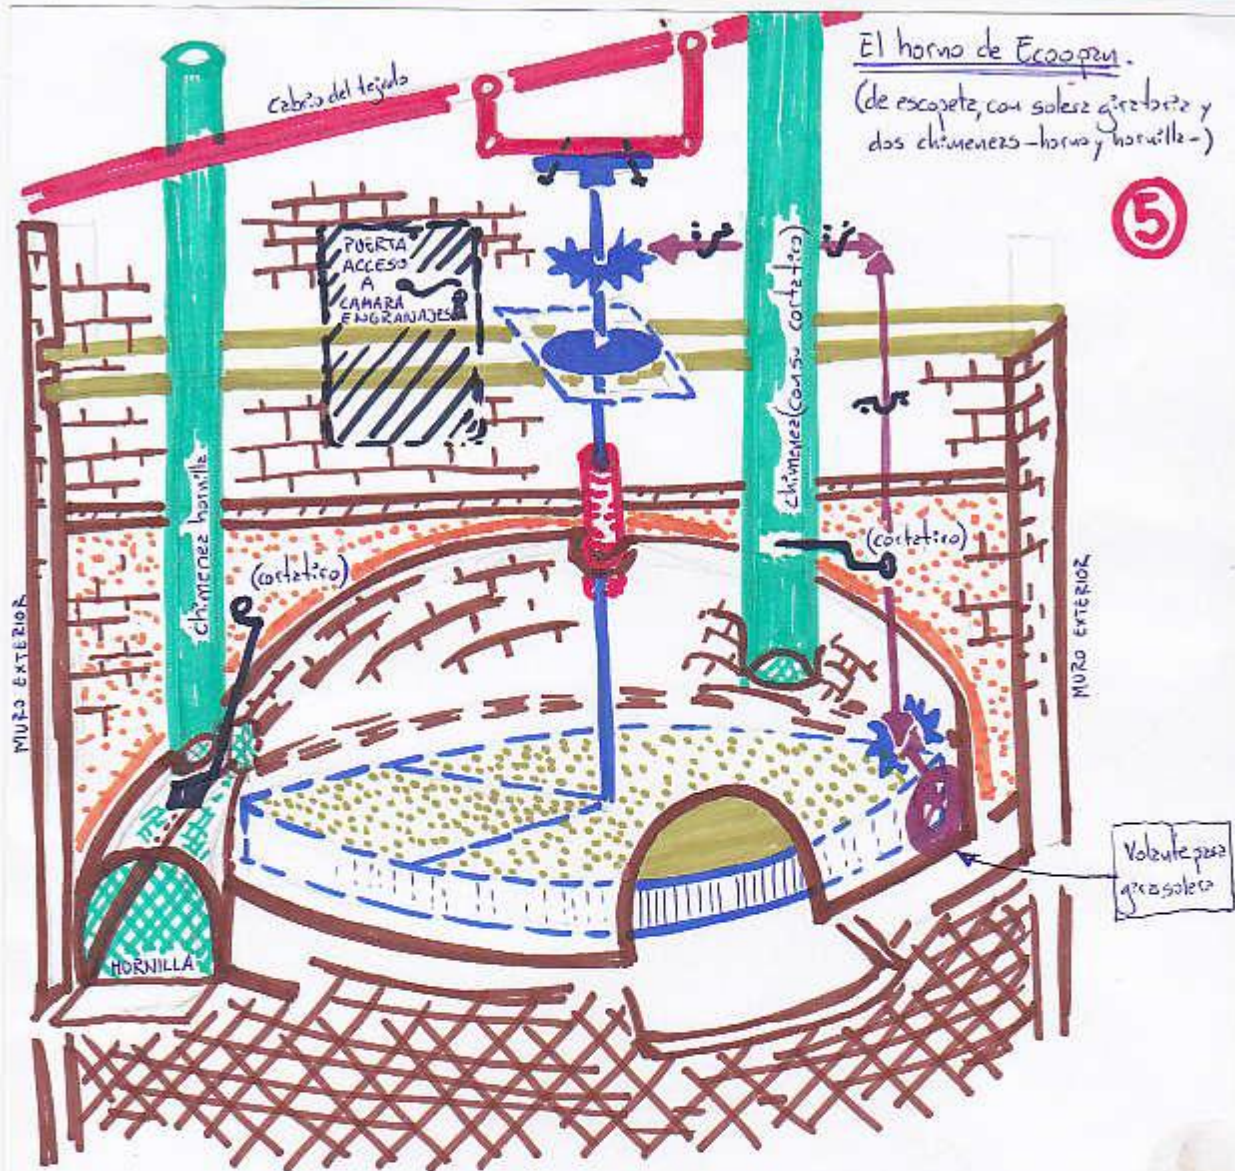 El horno de Ecoopan.
(de escopeta, con solera giratoria y
dos chimeneas -horno y hornilla-)
5
Cabrio del tejado
PUERTA
ACCESO
A
CAMARA
ENGRANAJES
chimenea (con su cortatiro)
chimenea hornilla
(cortatiro)
(cortatiro)
MURO EXTERIOR
MURO EXTERIOR
Volante para
girar solera
HORNILLA